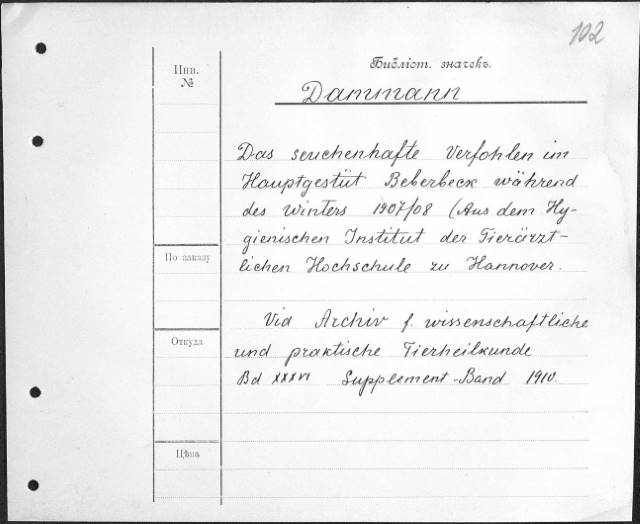 102
Библіот. значекъ.
Инв.
№
Dammann
Das seuchenhafte Verfohlen im
Hauptgestüt Beberbeck während
des Winters 1907/08 (Aus dem Hy-
gienischen Institut der Tierärzt-
lichen Hochschule zu Hannover.
По заказу
Vid Archiv f. wissenschaftliche
und praktische Tierheilkunde
Bd XXXVI Supplement-Band 1910.
Откуда
Цѣна